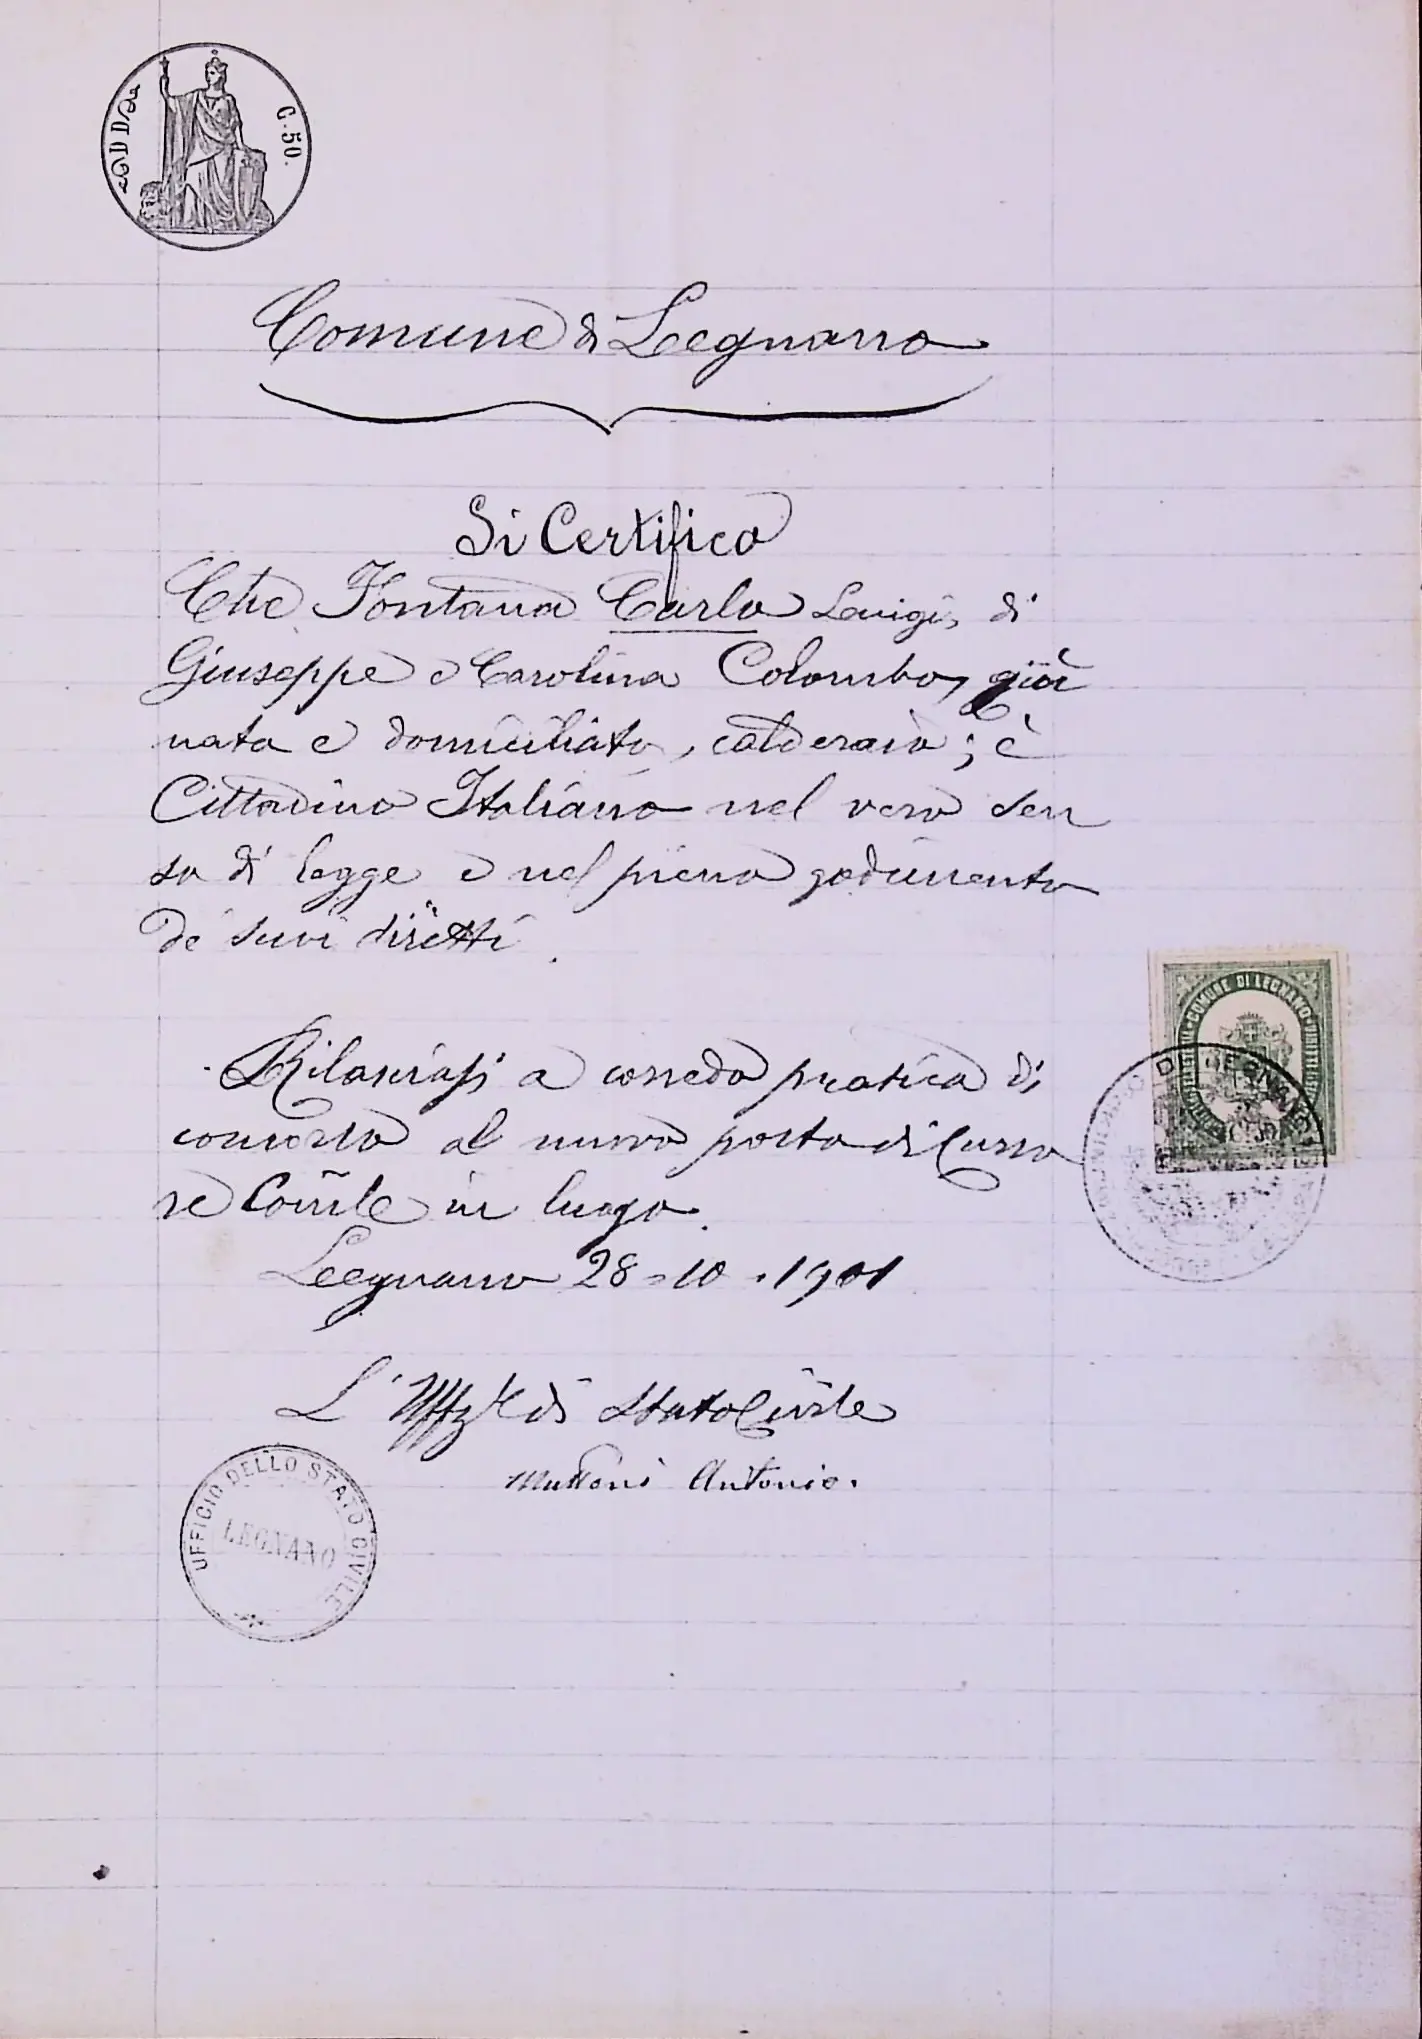 C. 50.
Comune di Legnano
Si Certifica
Che Fontana Carlo Luigi, di
Giuseppe e Carolina Colombo, qui
nato e domiciliato, calderaio; è
Cittadino Italiano nel vero sen
so di legge e nel pieno godimento
de' suoi diritti.
Rilasciasi a corredo pratica di
concorso al nuovo posto di Curso
re Com̃le in luogo.
Legnano 28-10-1901
L'Uff.le di Stato Civile
Antonio.
COMUNE DI LEGNANO
UFFICIO DELLO STATO CIVILE
LEGNANO